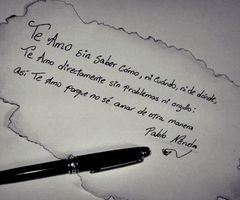 Te Amo sin Saber Cómo, ni Cuándo, ni de dónde,
Te Amo directamente sin problemas ni orgullo:
Asi Te Amo porque no sé amar de otra manera
Pablo Neruda